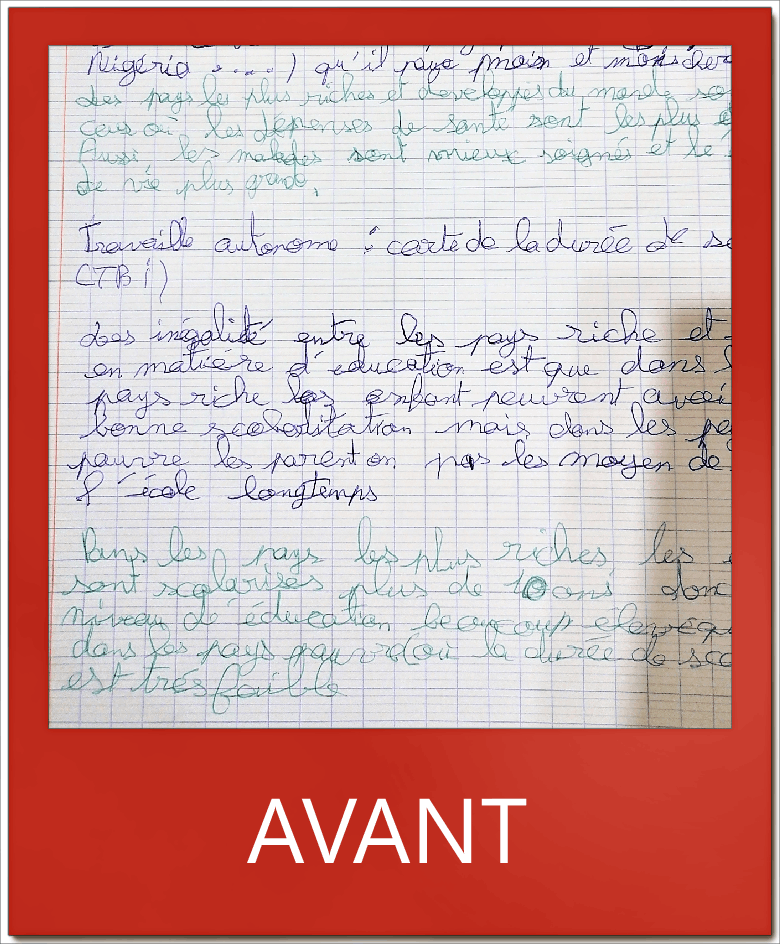 Nigéria ....) qu'il paye moin et moins cher
Les pays les plus riches et developpés du monde so
ceux où les dépenses de santé sont les plus é
Aussi les malades sont mieux soignés et le
de vie plus grande.
Travaille autonome : carte de la durée de sc
CTB i)
Les inégalité entre les pays riche et
en matière d'éducation est que dans l
pays riche les enfant peuvent avoi
bonne mais dans les pa
pauvre les parent on pas les moyen de
l'école longtemps
Dans les pays les plus riches les e
sont scolarisés plus de 10 ans donc
niveau d'éducation beaucoup élevé qu
dans les pays pauvre où la durée de sco
est très faible
AVANT